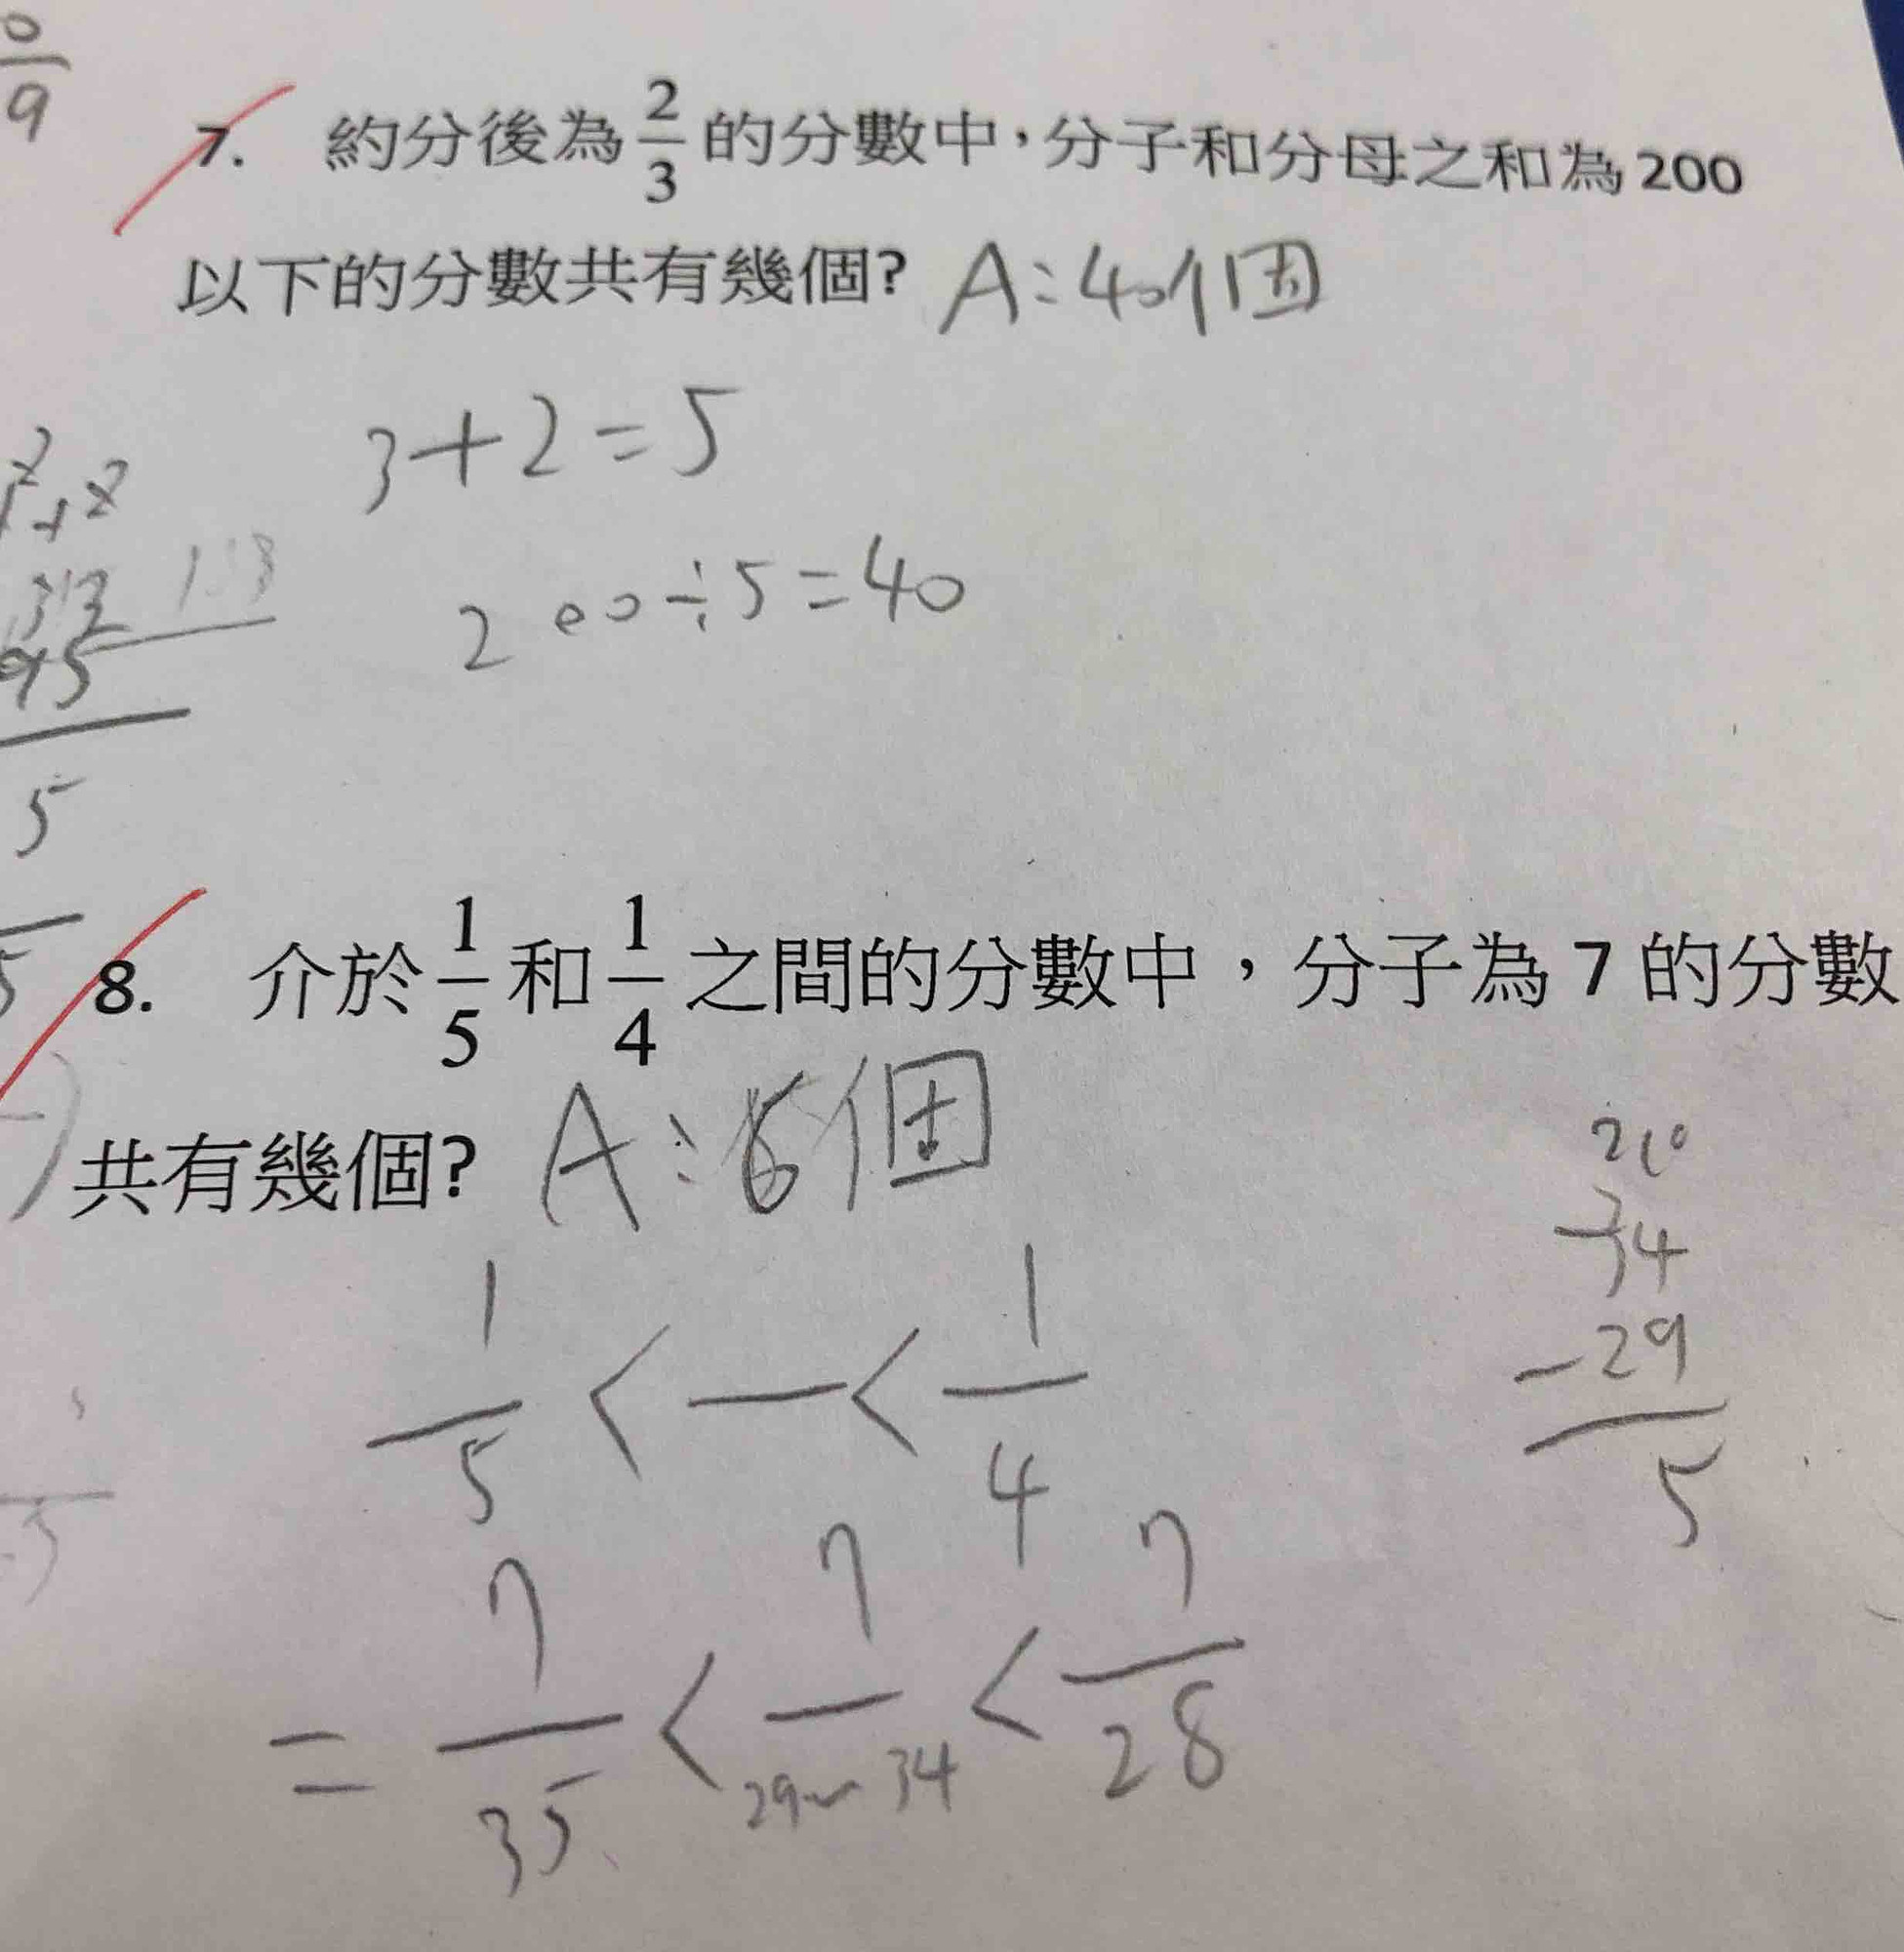 0/9
7. 約分後為 2/3 的分數中，分子和分母之和為 200
以下的分數共有幾個? A：40個
3+2=5
200÷5=40
5
8. 介於 1/5 和 1/4 之間的分數中，分子為 7 的分數
共有幾個? A：6個
1/5 < — < 1/4
= 7/35 < 7/29~34 < 7/28
34
-29
5